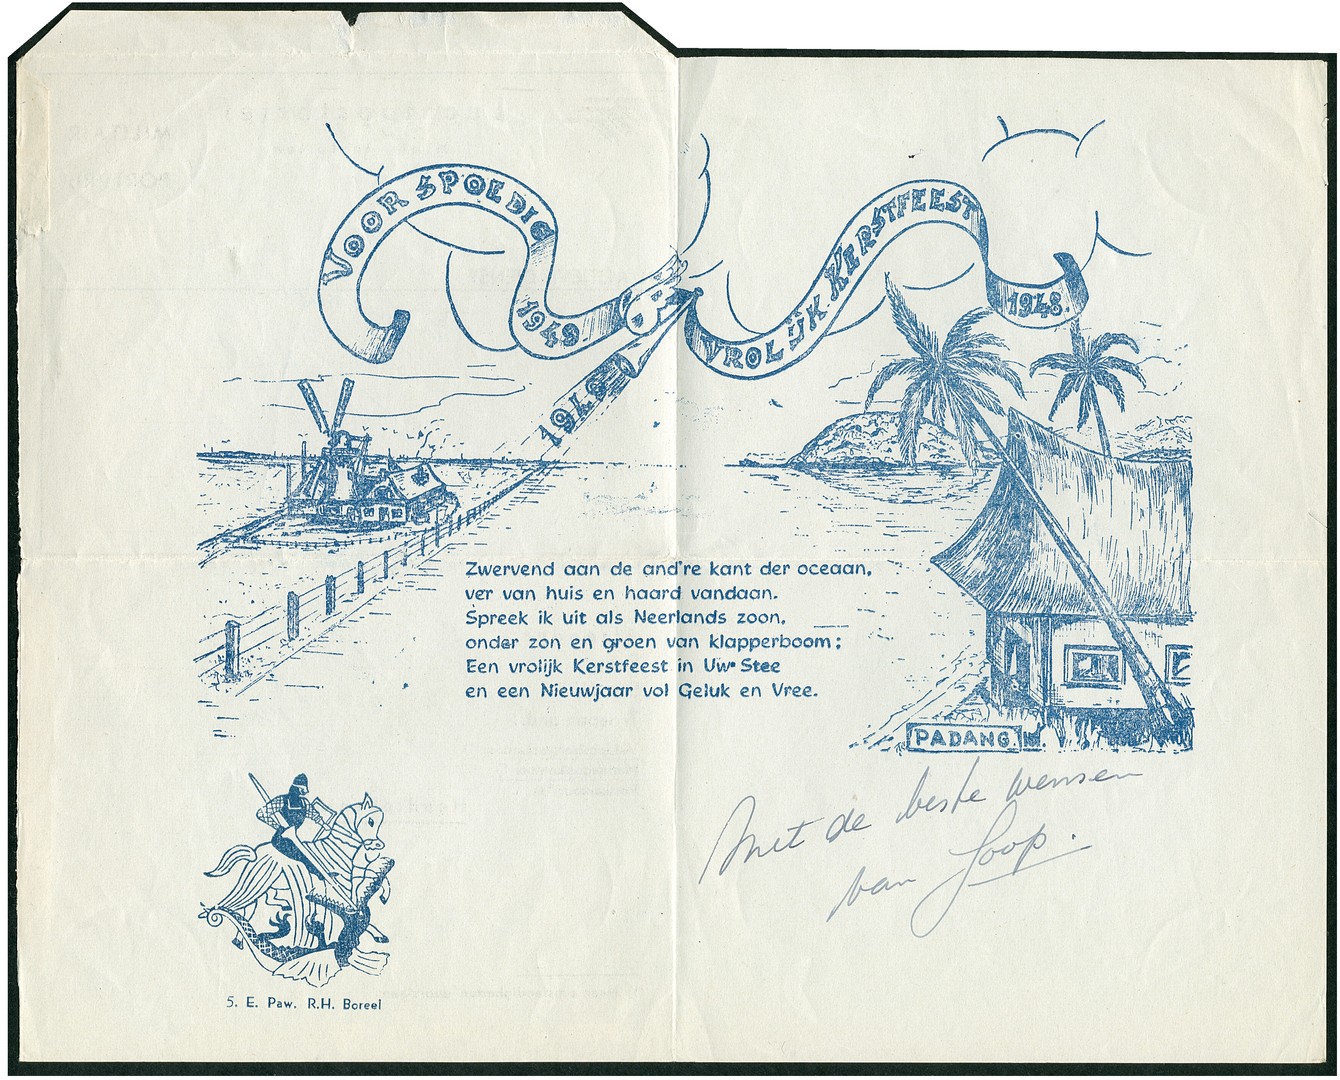 VOORSPOEDIG
1949
VROLIJK KERSTFEEST
1948
1948
Zwervend aan de and're kant der oceaan,
ver van huis en haard vandaan.
Spreek ik uit als Neerlands zoon,
onder zon en groen van klapperboom;
Een vrolijk Kerstfeest in Uw Stee
en een Nieuwjaar vol Geluk en Vree.
PADANG
Met de beste wensen
van Joop.
5. E. Paw. R.H. Boreel